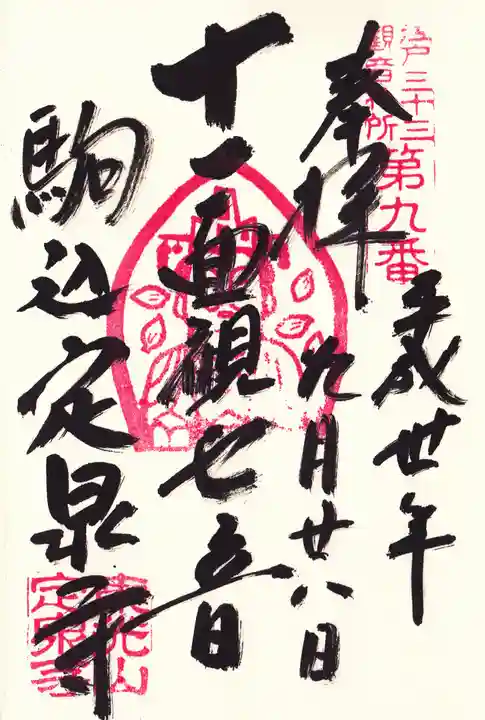 江戸三十三
観音札所
第九番
奉拝
平成卅年
九月廿八日
十一面観世音
駒込定泉寺
東光山
定泉寺